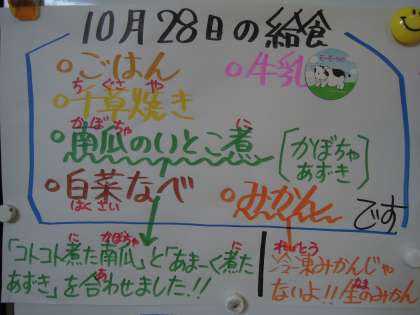 10月28日の給食
ごはん
牛乳
ちぐさや
千草焼き
かぼちゃ に
南瓜のいとこ煮
かぼちゃ
あずき
白菜なべ
はくさい
みかん
です
に かぼちゃ に
「コトコト煮た南瓜」と「あまーく煮た
あずき」を合わせました!!
あ
れいとう
冷凍みかんじゃ
ないよ!!生のみかん
なま